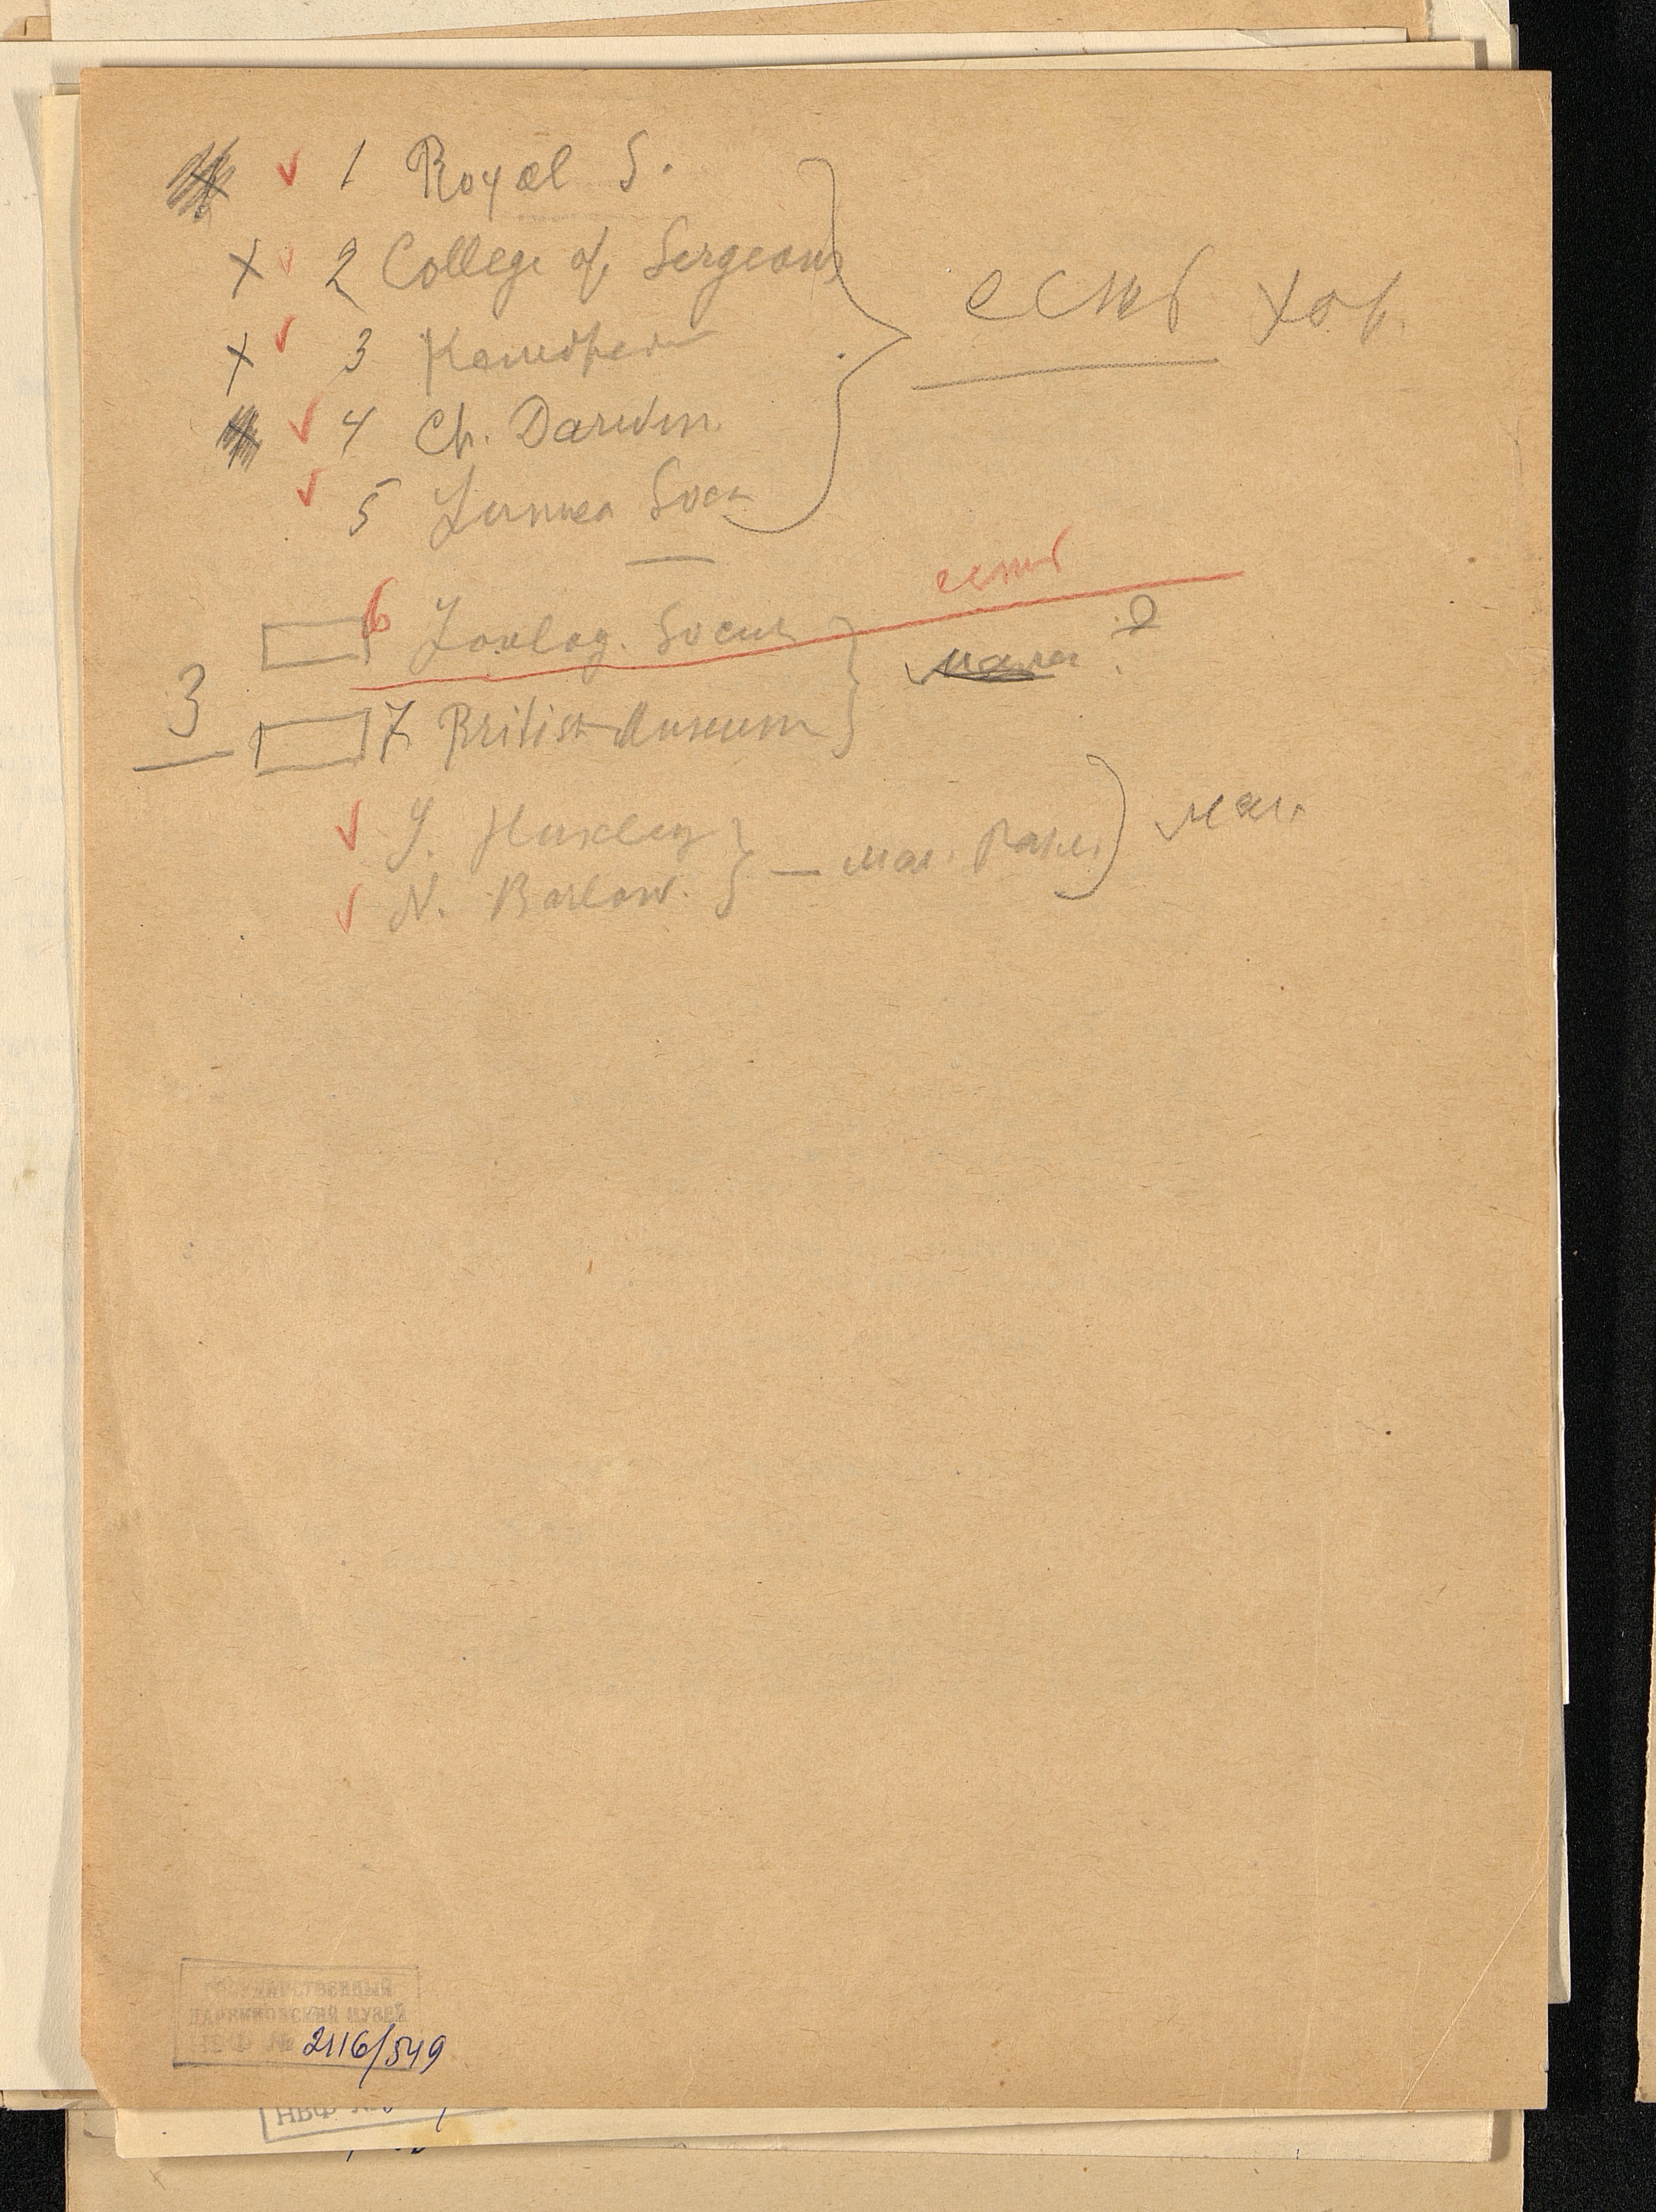 ✓ 1 Royal S.
× ✓ 2 College of Sergeons
есть хор.
× ✓ 3
✓ 4 Ch. Darwin.
✓ 5 Linnea Soc.
есть
6 Zoolog. Socie
мал ?
3
7 British Museum
✓ J. Huxley
— мал. Разм.
мал.
✓ N. Barlow.
ГОСУДАРСТВЕННЫЙ
ДАРВИНОВСКИЙ МУЗЕЙ
НВФ № 2116/549
НВФ №